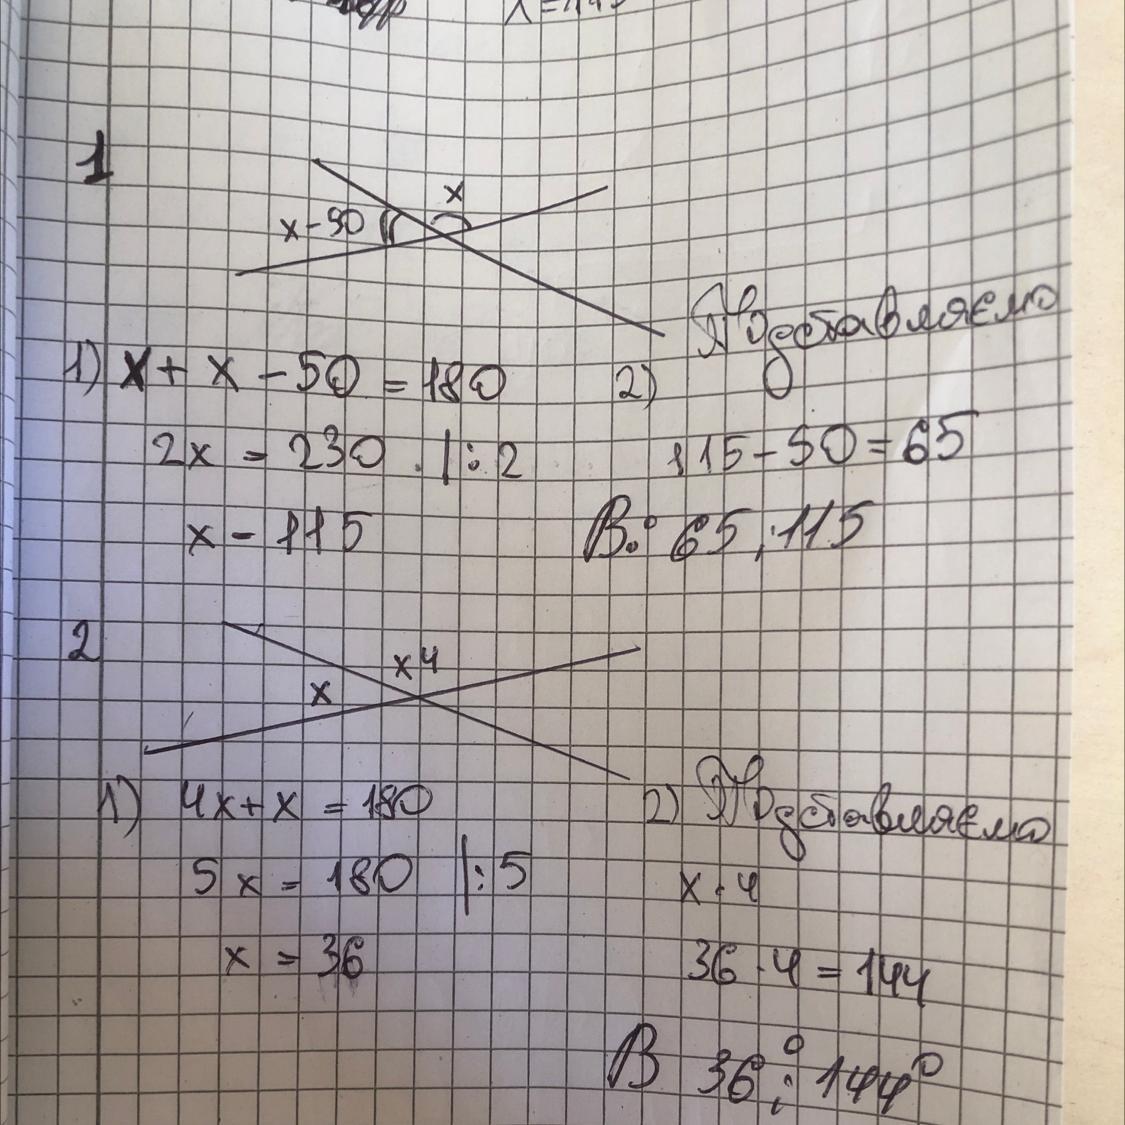 1
x
x-50
1) x + x - 50 = 180
2x = 230 |:2
x - 115
2) Подставляємо
115 - 50 = 65
В: 65; 115
2
x4
x
1) 4x + x = 180
5x = 180 |:5
x = 36
2) Подставляємо
x · 4
36 · 4 = 144
В 36°; 144°